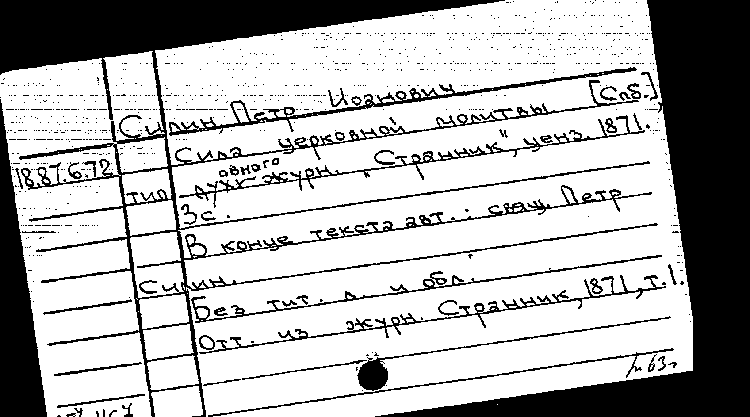 Силин, Петр Иоанович
Сила церковной молитвы [Спб.],
18.87.6.72
тип. духовного журн. "Странник", ценз. 1871.
3с.
В конце текста авт.: свящ. Петр
Силин.
Без тит. л. и обл.
Отт. из журн. Странник, 1871, т.1.